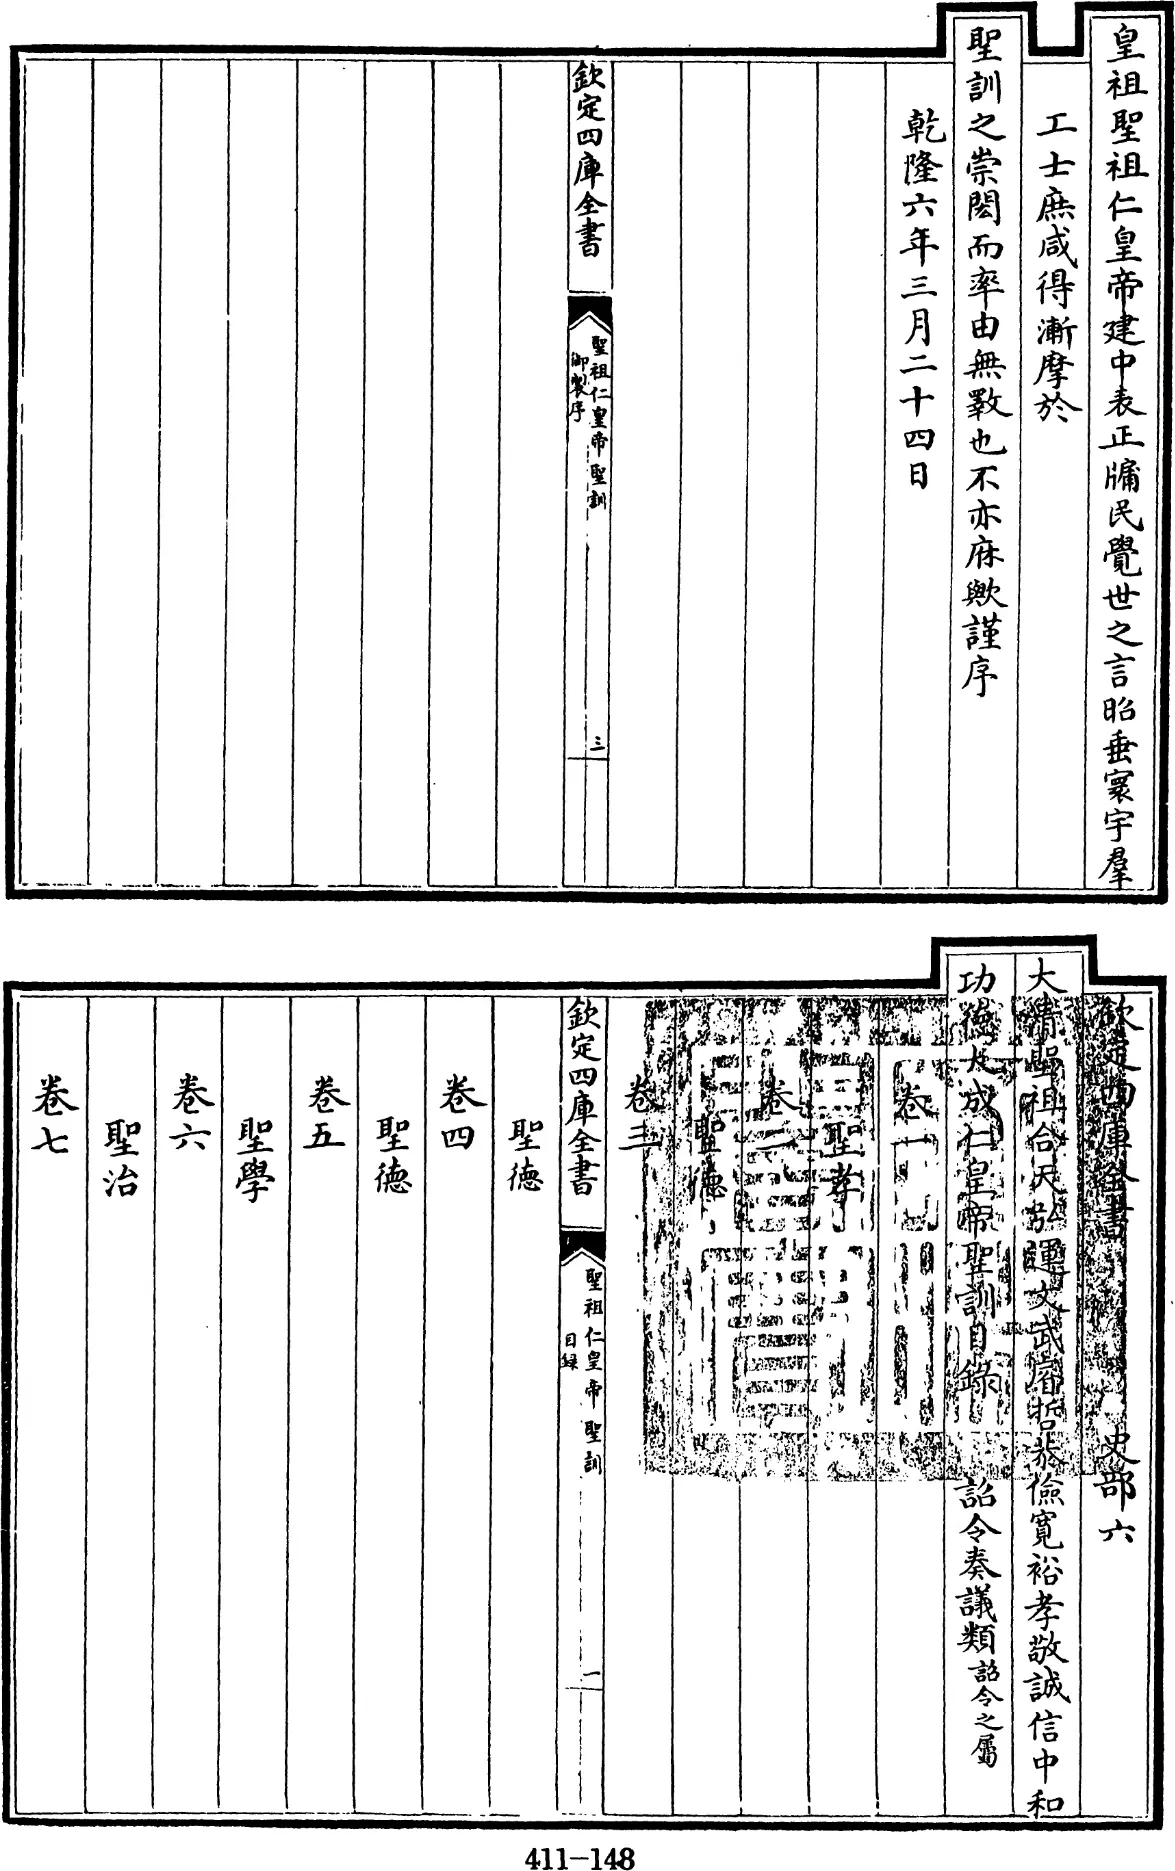 皇祖聖祖仁皇帝建中表正牖民覺世之言昭垂寰宇羣
工士庶咸得漸摩於
聖訓之崇閎而率由無斁也不亦庥歟謹序
乾隆六年三月二十四日
欽定四庫全書
聖祖仁皇帝聖訓
御製序
三
欽定四庫全書
史部六
大清聖祖合天弘運文武睿哲恭儉寬裕孝敬誠信中和
功德大成仁皇帝聖訓目錄
詔令奏議類詔令之屬
卷一
聖孝
卷二
聖德
卷三
欽定四庫全書
聖祖仁皇帝聖訓
目録
一
聖德
卷四
聖德
卷五
聖學
卷六
聖治
卷七
411-148